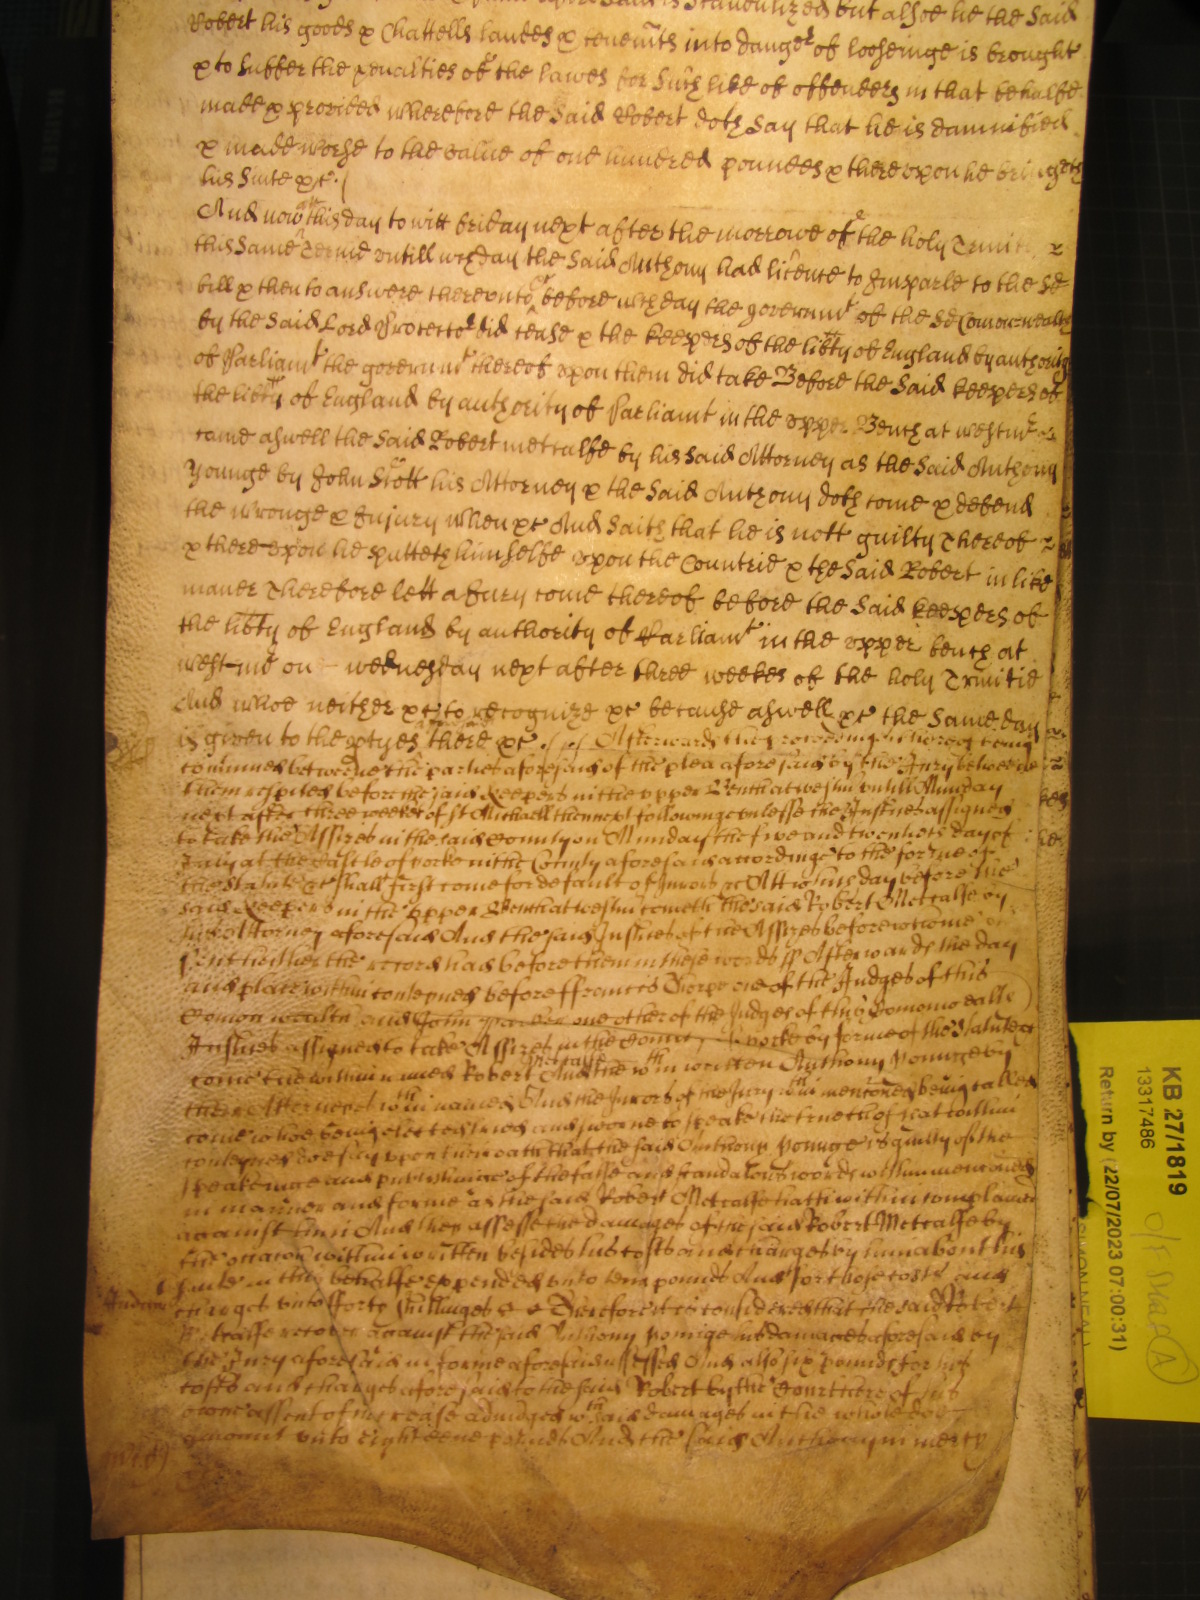 aforesaid is scandalized but alsoe he the said
Robert his goods & Chattells landes & tenemts into danger of looseinge is brought
& to suffer the penalties of the lawes for such like of offenders in that behalfe
made & provided Wherefore the said Robert doth say that he is damnified
& made worse to the value of one hundred poundes & there upon he bringeth
his suite &c
And now att this day to witt friday next after the morrowe of the holy Trinit
this same Terme untill wch day the said Anthony had licence to Imparle to the sd
bill & then to answere thereunto before wch day the governmt of the sd Comonwealth
by the said Lord Protector did cease & the keepers of the libty of England by authority
of Parliamt the governmt thereof upon them did take Before the said keepers of
the libty of England by authority of Parliamt in the upper Bench at westmr
came aswell the said Robert metcalfe by his said Attorney as the said Anthony
Younge by John Stott his Attorney & the said Anthony doth come & defend
the wronge & Injury when &c And saith that he is nott guilty Thereof
& there upon he putteth himselfe upon the Countrie & the said Robert in like
maner Therefore lett a Jury come thereof before the said keepers of
the libty of England by authority of Parliamt in the upper bench at
westme on wednesday next after three weekes of the holy Trinitie
And whoe neither &c to recognize &c because aswell &c the same day
is given to the ptyes there &c Afterwards the proceedings thereof being
continued betweene the parties aforesaid of the plea aforesaid by the Jury betweene
them respited before the said keepers in the upper Bench at westm untill Munday
next after three weekes of st Michaell then next following unlesse the Justices assigned
to take the Assizes in the said County on Munday the five and twentieth day of
July at the Castle of yorke in the County aforesaid accordinge to the forme of
the statute &c shall first come for default of Jurors &c Att which day before the
said keepers in the upper Bench at westm cometh the said Robert Metcalfe by
his Attorney aforesaid And the said Justices of the Assizes before whome
sent hither their record had before them in these words ss Afterwards the day
and place within conteyned before ffrancis Thorpe one of the Judges of this
Comon wealth and John Parker one other of the Judges of this Comonwealth
Justices assigned to take Assizes in the County of yorke by forme of the Statute &c
come the within named Robert Metcalfe And the wthin written Anthony younge by
their Attorneys wthin named And the Jurors of the Jury wthin mentioned being called
come whoe being elected tryed and sworne to speake the trueth of that within
conteyned doe say upon their oath that the said Anthony younge is guilty of the
speakeinge and publishinge of the false and scandalous words within mentioned
in manner and forme as the said Robert Metcalfe hath within complained
against him And they assesse the damages of the said Robert Metcalfe by
the occasion within written besides his costs and charges by him about his
suite in this behalfe expended unto tenn pounds And for those costs and
charges unto forty shillinges Therefore it is considered that the said Robert
Metcalfe recover against the said Anthony younge his damages aforesaid by
the Jury aforesaid in forme aforesaid assessed And also six pounds for his
costs and charges aforesaid to the said Robert by the Court here of his
owne assent of increase adiudged wch said damages in the whole doe
amount unto eighteene pounds And the said Anthony in mercy
KB 27/1819
13317486
Return by (22/07/2023 07:00:31)